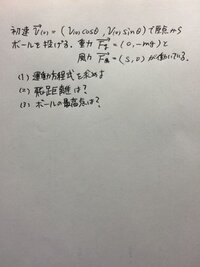 初速 V⃗(0) = (V(0)cosθ, V(0)sinθ)で原点から
ボールを投げる。重力 F⃗重 = (0, -mg)と
風力 F⃗風 = (S, 0)が働いている。
(1) 運動方程式を求めよ
(2) 飛距離は?
(3) ボールの最高点は?